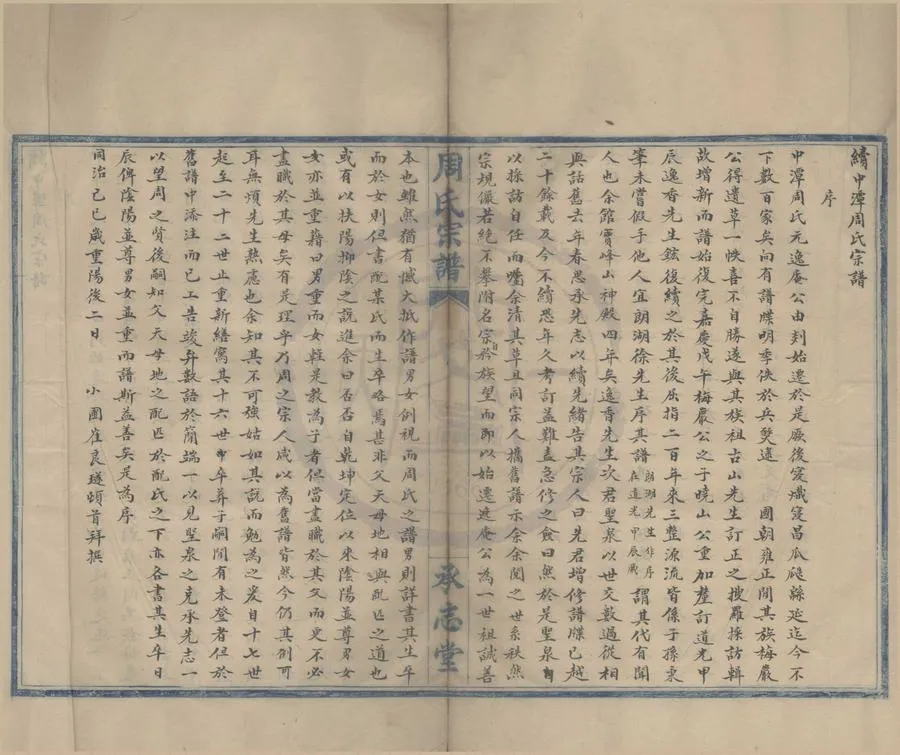 續中潭周氏宗譜
序
中潭周氏元逸庵公由剡始遷於是厥後寖熾寖昌瓜瓞緜延迄今不
下數百家矣向有譜牒明季佚於兵燹逮 國朝雍正間其族梅巖
公得遺草一帙喜不自勝遂與其族祖古山先生訂正之搜羅採訪輯
故增新而譜始復完嘉慶戊午梅巖公之子曉山公重加釐訂道光甲
辰逸香先生鉉復續之於其後屈指二百年來三整源流皆係子孫秉
筆未嘗假手他人宜朗湖徐先生序其譜朗湖先生作序在道光甲辰歲謂其代有聞
人也余館賈峰山神殿四年矣逸香先生次君聖泉以世交數過從相
與話舊去年春思承先志以續先緒告其宗人曰先君增修譜牒已越
二十餘載及今不續恐年久考訂益難盍急修之僉曰然於是聖泉自
以採訪自任而囑余清其草且同宗人攜舊譜示余余閱之世系秩然
宗規儼若絕不攀附名宗冒於族望而即以始遷逸庵公為一世祖誠善
周氏宗譜
承志堂
本也雖然猶有憾大抵作譜男女創視而周氏之譜男則詳書其生卒
而於女則但書配某氏而生卒略焉甚非父天母地相與配匹之道也
或有以扶陽抑陰之說進余曰否否自乾坤定位以來陰陽並尊男女
女亦並重藉曰男重而女輕是教為子者但當盡職於其父而更不必
盡職於其母矣有是理乎乃周之宗人咸以為舊譜皆然今仍其例可
耳無煩先生熟應也余知其不可強姑如其說而勉為之爰自十七世
起至二十二世止重新繕寫其十六世中卒葬子嗣間有未登者但於
舊譜中添注而已工告竣弁數語於簡端一以見聖泉之克承先志一
以望周之賢後嗣知父天母地之配匹於配氏之下亦各書其生卒日
辰俾陰陽並尊男女並重而譜斯益善矣是為序
同治己巳歲重陽後二日 小圃崔良璲頓首拜撰